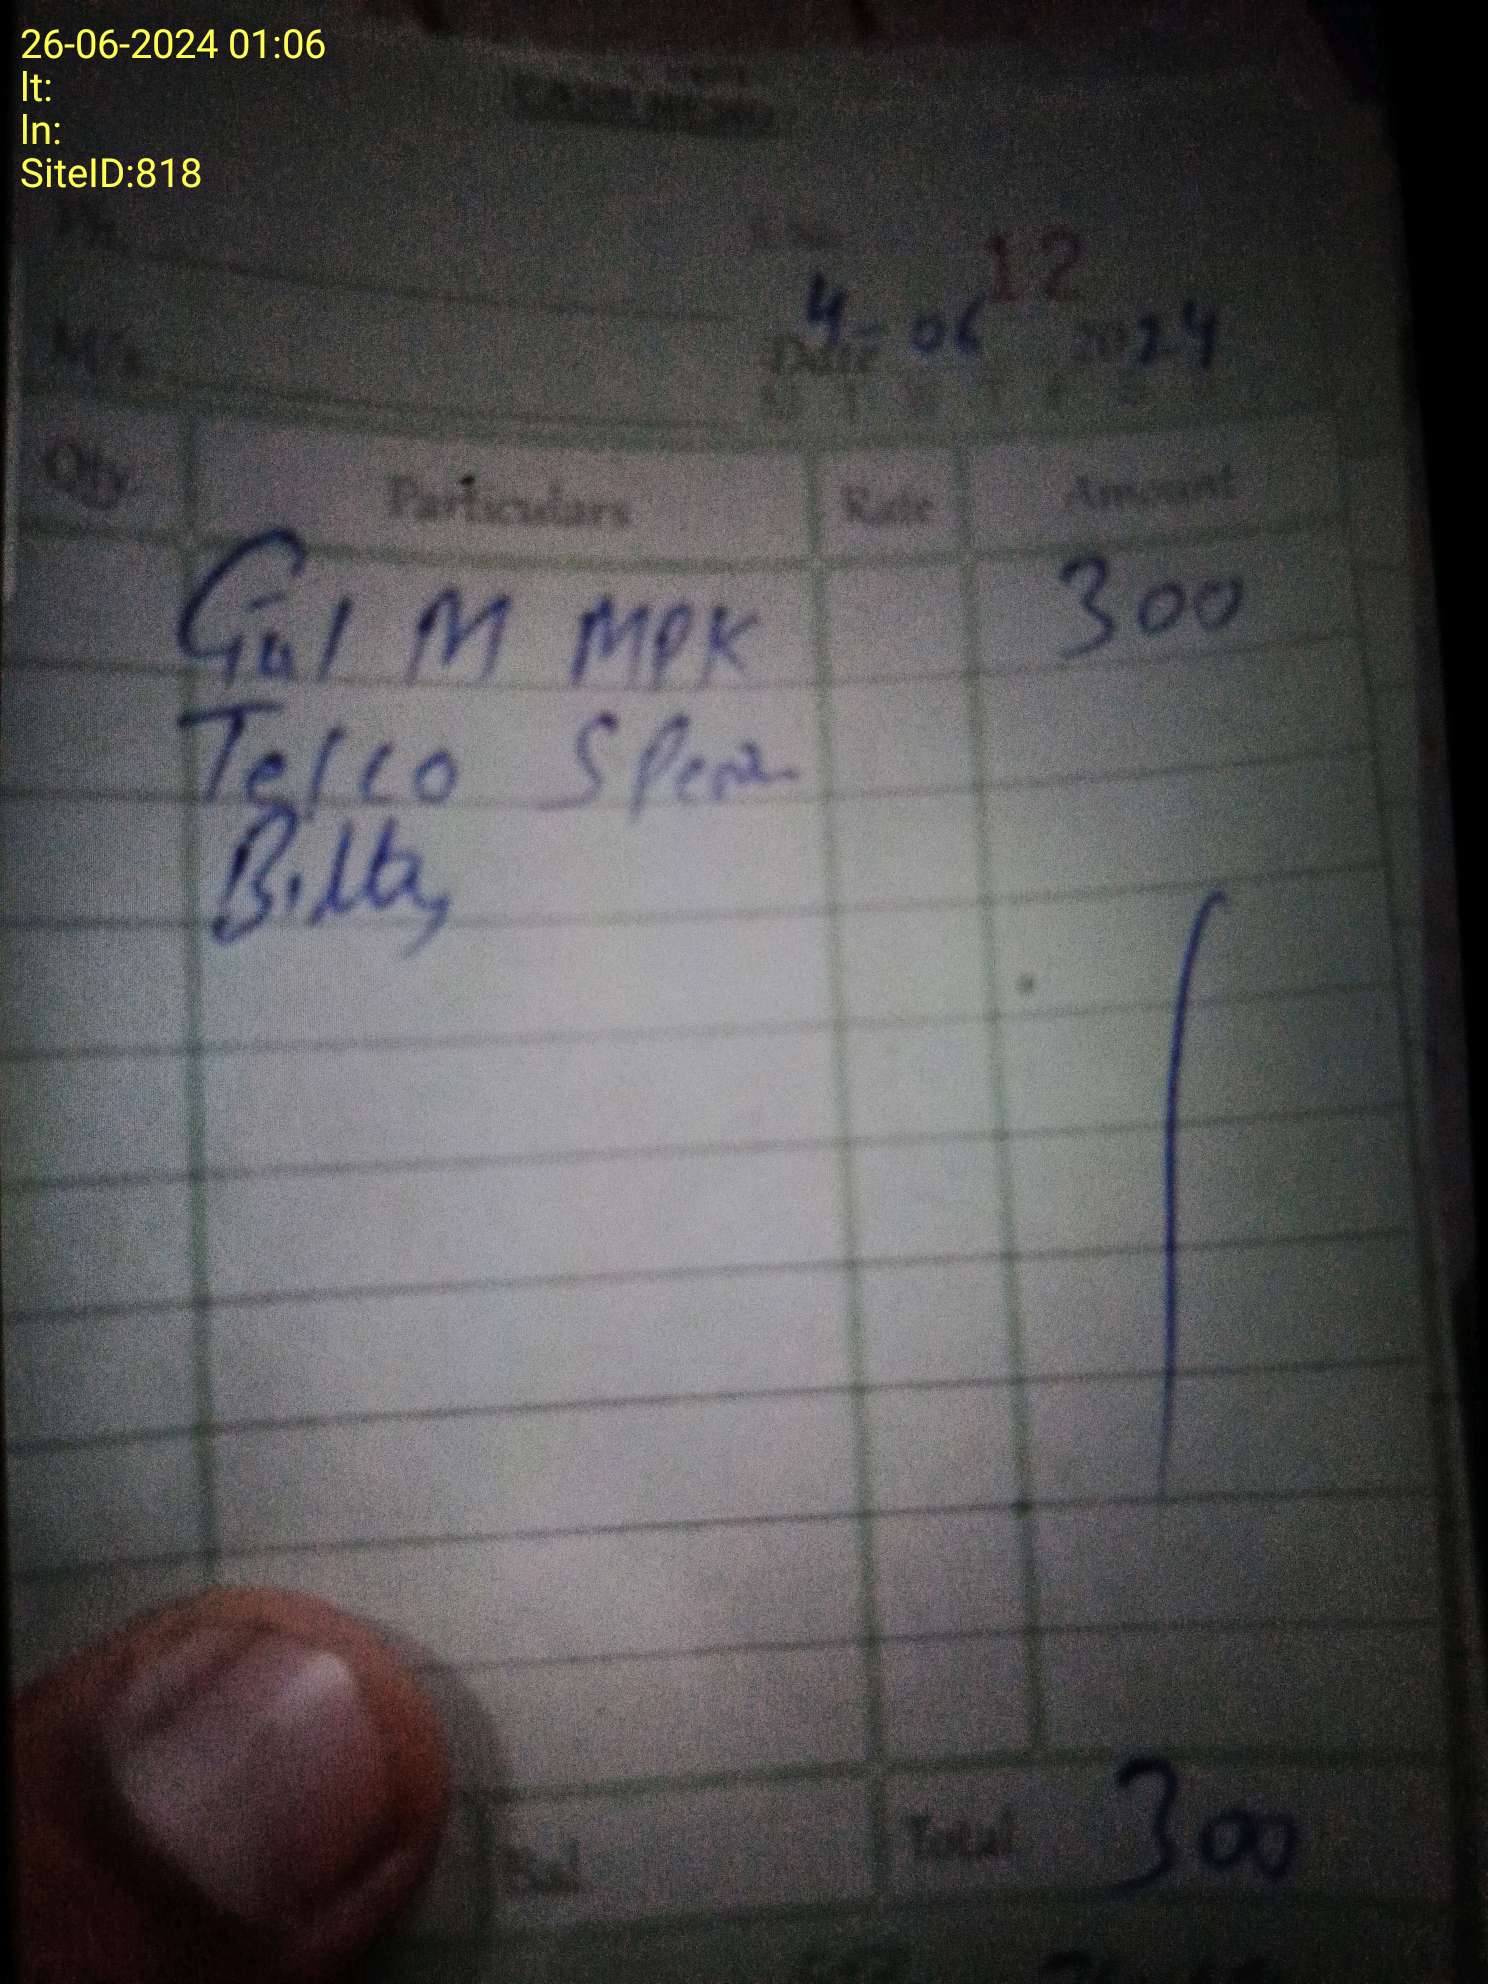 26-06-2024 01:06
lt:
ln:
SiteID:818
CASH MEMO
No.
12
M/s.
Date 4-06 2024
Qty. Particulars Rate Amount
Gul M MPK 300
Tesco
Bilty
Total 300